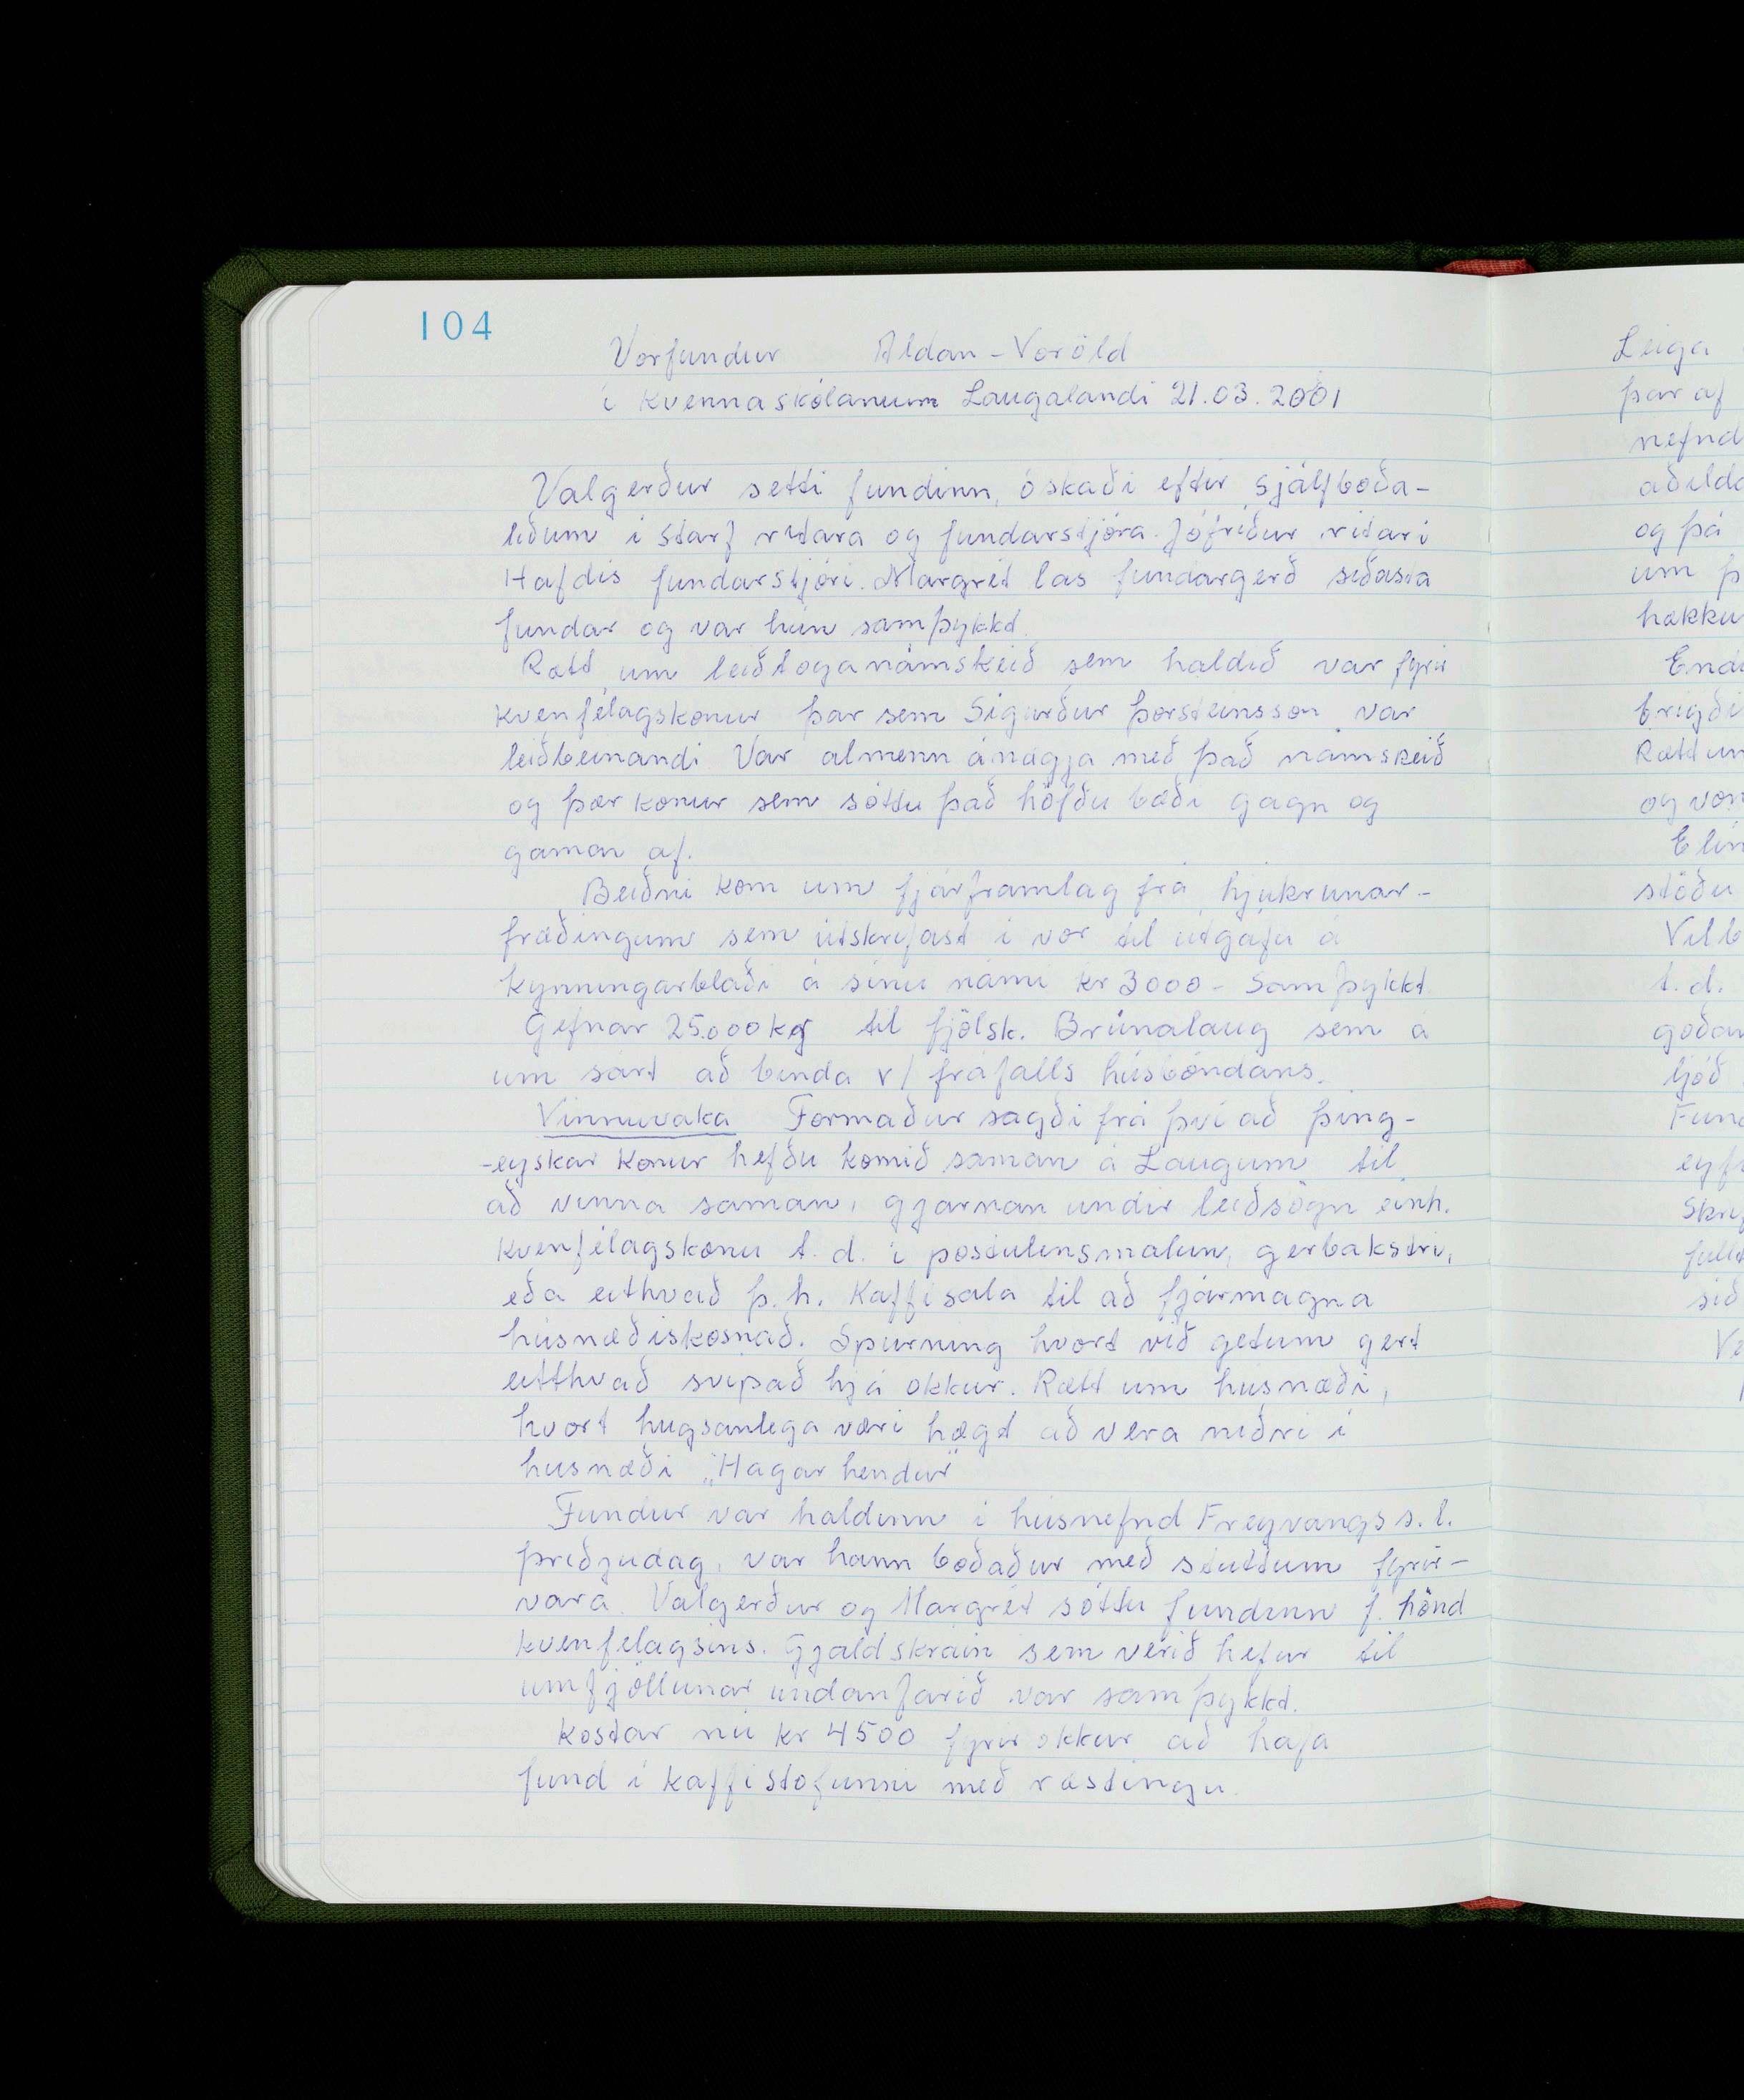 104
Vorfundur Aldan - Voröld
í Kvennaskólanum Laugalandi 21.03.2001
Valgerður setti fundinn, óskaði eftir sjálfboða-
liðum í starf ritara og fundarstjóra. Jófríður ritari
Hafdís fundarstjóri. Margrét las fundargerð síðasta
fundar og var hún samþykkt.
Rætt um leiðtoganámskeið sem haldið var fyrir
kvenfélagskonur þar sem Sigurður Þorsteinsson var
leiðbeinandi Var almenn ánægja með það námskeið
og þær konur sem sóttu það höfðu bæði gagn og
gaman af.
Beiðni kom um fjárframlag frá hjúkrunar-
fræðingum sem útskrifast í vor til útgáfu á
kynningarblaði á sínu námi kr 3000 - Samþykkt.
Gefnar 25.000 kr til fjölsk. Brúnalaug sem á
um sárt að binda v/ fráfalls húsbóndans.
Vinnuvaka Formaður sagði frá því að þing-
-eyskar konur hefðu komið saman á Laugum til
að vinna saman, gjarnan undir leiðsögn einh.
kvenfélagskonu t.d. í postulínsmálun, gerbakstri,
eða eithvað þ.h. Kaffisala til að fjármagna
húsnæðiskosnað. Spurning hvort við getum gert
eitthvað svipað hjá okkur. Rætt um húsnæði,
hvort hugsanlega væri hægt að vera niðri í
húsnæði „Hagar hendur"
Fundur var haldinn í húsnefnd Freyvangs s.l.
þriðjudag, var hann boðaður með stuttum fyrir-
vara. Valgerður og Margrét sóttu fundinn f. hönd
kvenfélagsins. Gjaldskráin sem verið hefur til
umfjöllunar undanfarið var samþykkt.
Kostar nú kr 4500 fyrir okkur að hafa
fund í kaffistofunni með ræstingu.
Leiga
þar af
nefnd
og þá
um þ
stöðu
t.d.
ljóð
sið